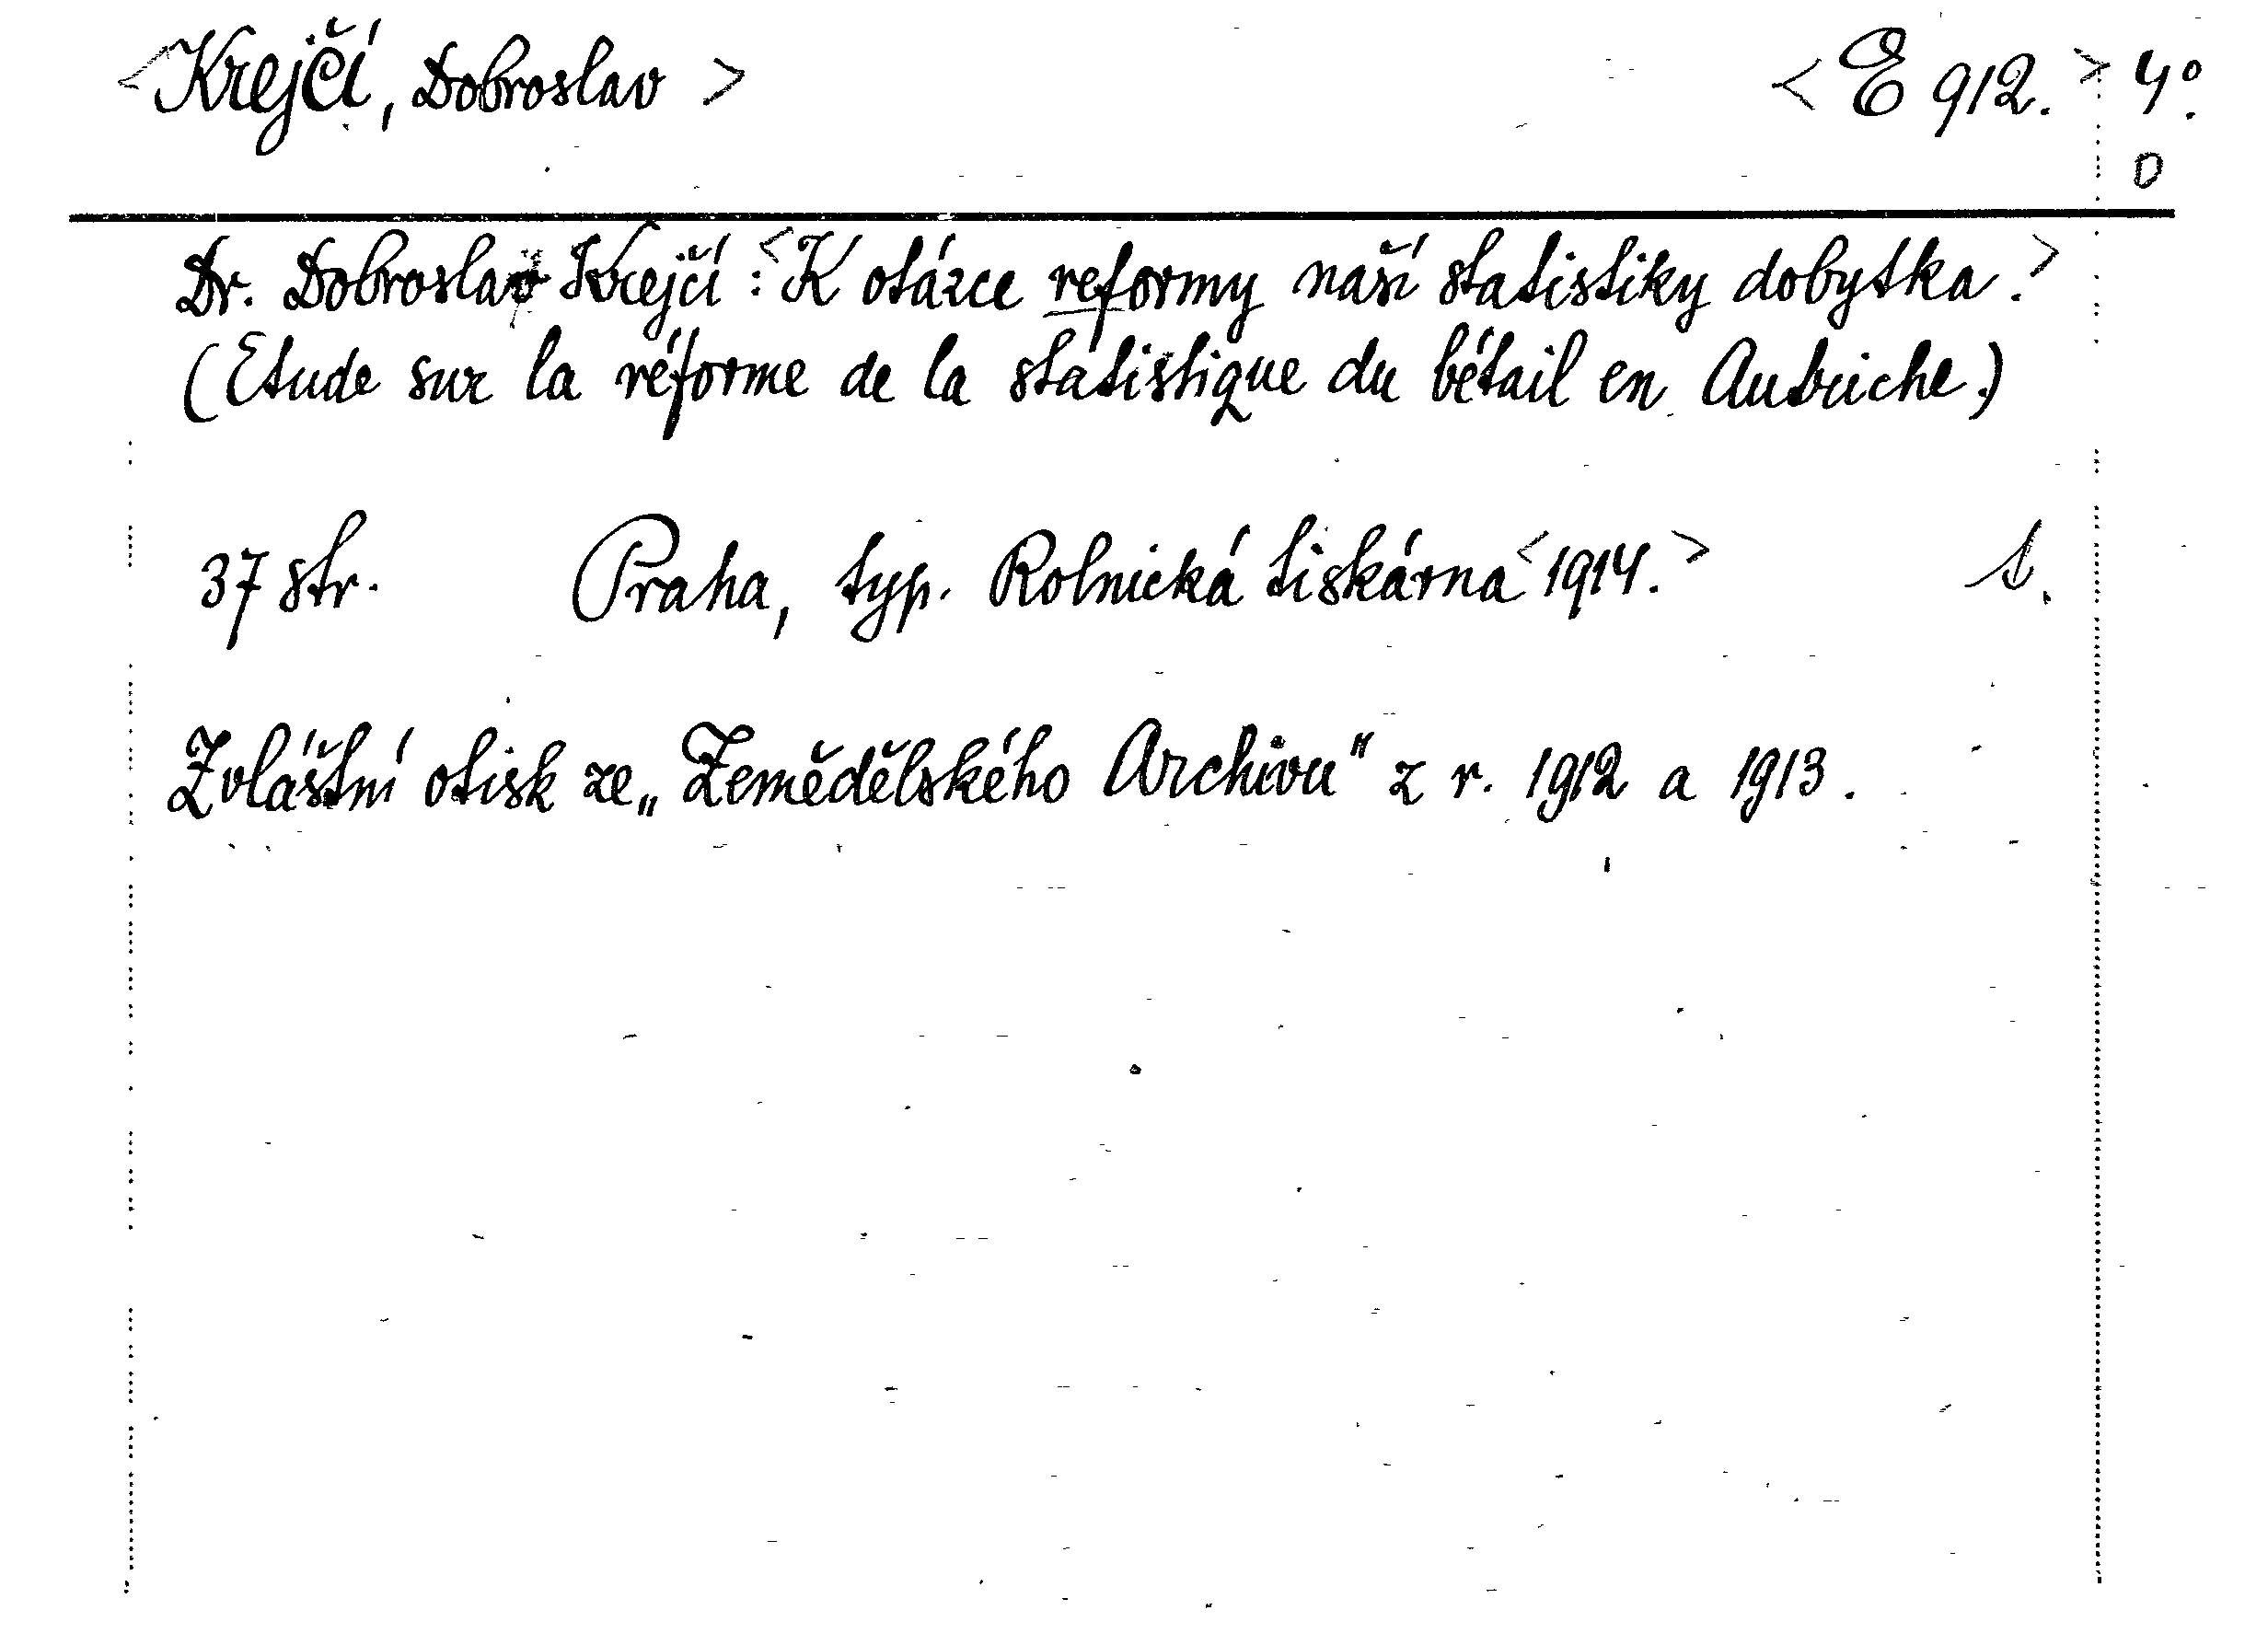 <Krejčí, Dobroslav> <E 912.> 4°.
0
Dr. Dobroslav Krejčí: <K otázce reformy naší statistiky dobytka.>
(Etude sur la réforme de la statistique du bétail en Autriche.)
37 str. Praha, typ. Rolnická tiskárna <1914.>
Zvláštní otisk ze „Zemědělského Archivu" z r. 1912 a 1913.